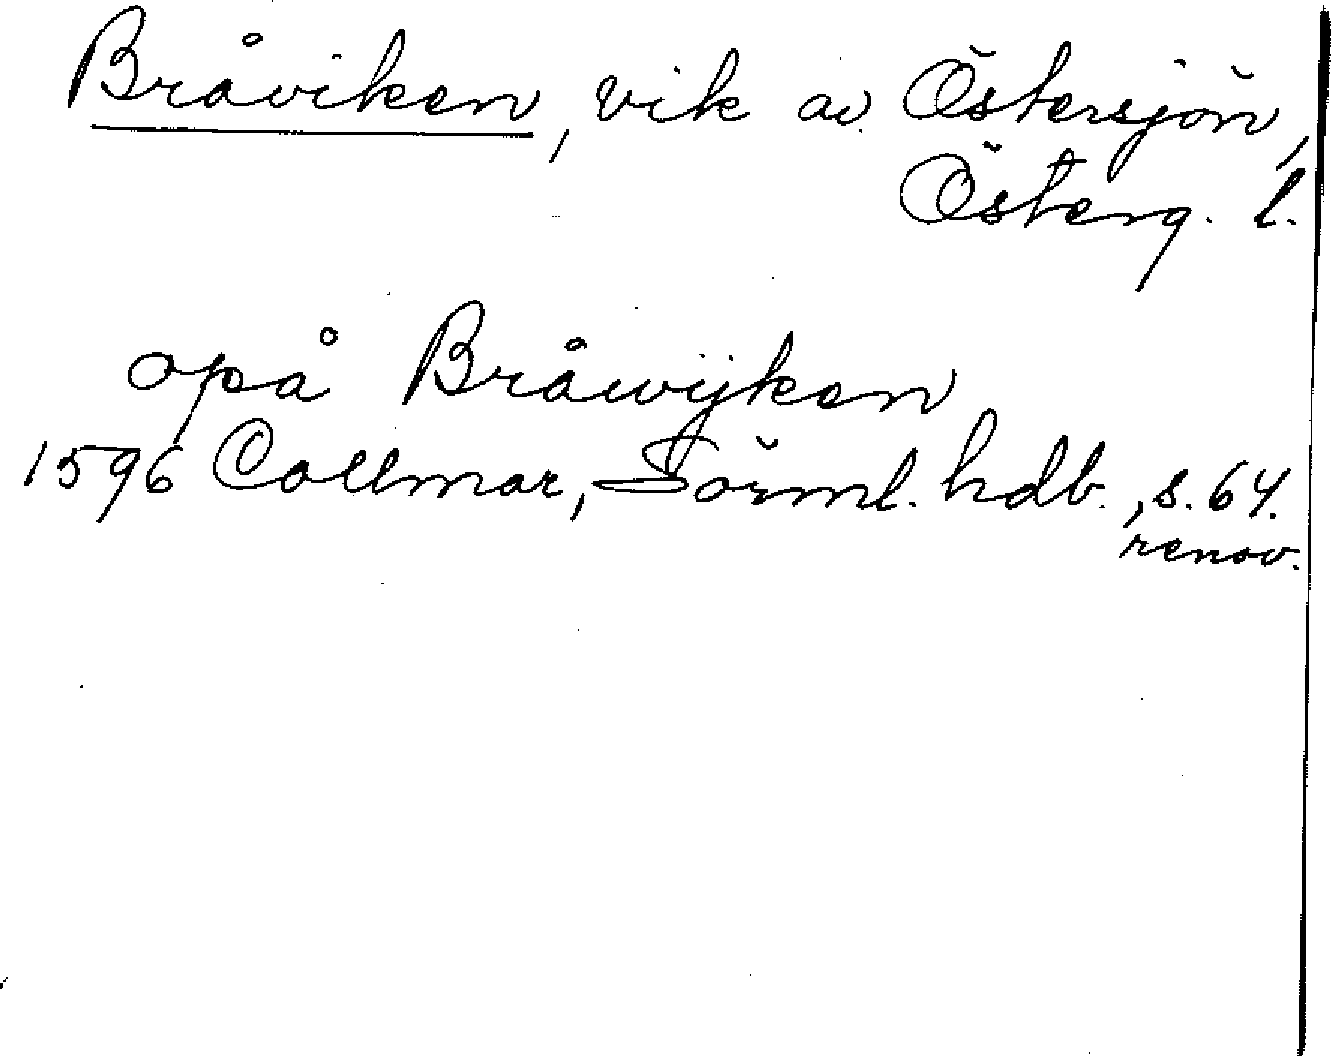 Bråviken, vik av Östersjön,
Österg. l.
opå Bråwijken
1596 Collmar, Sörml. hdb., s. 64.
renov.